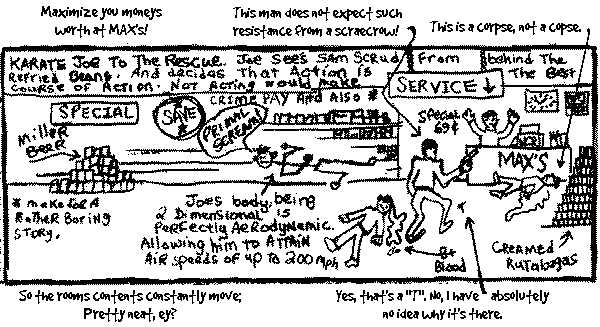 Maximize you moneys
worth at MAX's!
This man does not expect such
resistance from a scraecrow!
This is a corpse, not a copse.
KARATE JOE TO THE RESCUE. JOE SEES SAM SCRUD FROM behind The
REFRIED BEANS. And decides That Action is The Best
course of Action. Not Acting would make
CRIME PAY And Also *
SERVICE ↓
SPECIAL
SAVE
PRIMAL
SCREAM!
Special
69¢
Miller
Beer
MAX'S
* make for A
RATHER BORING
STORY.
Joes body, being
2 Dimensional is
Perfectly Aerodynamic.
Allowing him to ATTAIN
AIR speeds of up to 200 mph
B+
Blood
CREAMED
RUTABAGAS
So the rooms contents constantly move;
Pretty neat, ey?
Yes, that's a "T". No, I have absolutely
no idea why it's there.